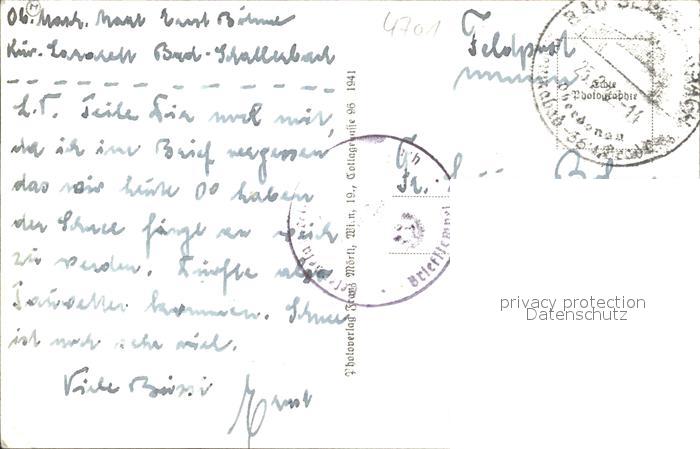 Ob. Masch. Maat Ernst Böhme
Kur-Lazarett Bad-Schallerbach
L.T. Teile Dir noch mit,
da ich im Brief vergessen
das wir heute 0° haben
der Schnee fängt an weich
zu werden. Dürfte also
Tauwetter kommen. Schnee
ist noch sehr viel.
Viele Bussi
Ernst
4701
Photoverlag Franz Mörtl, Wien, 19., Collagegasse 96 1941
Feldpost
Fr.
Echte
Photographie
BAD
Oberdonau
Briefstempel
privacy protection
Datenschutz